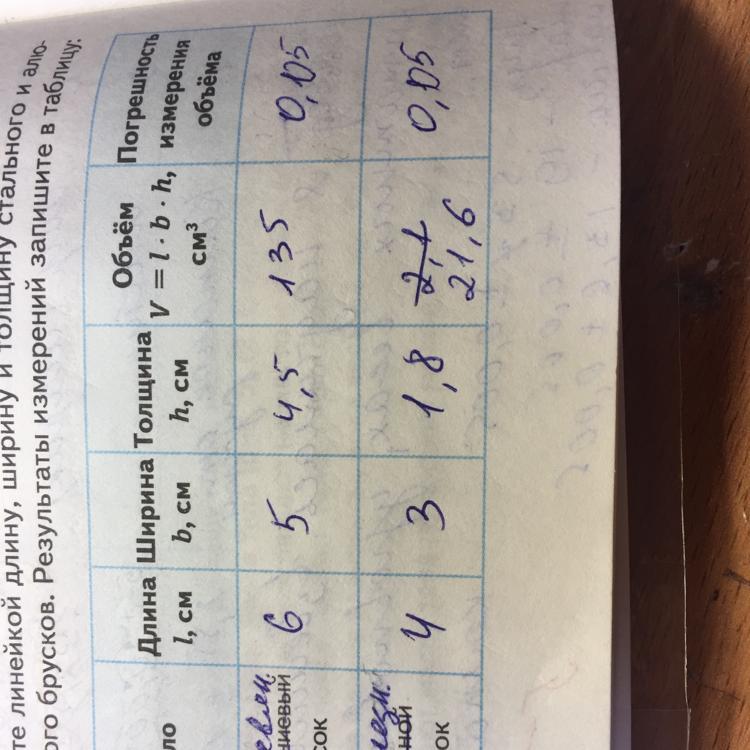 те линейкой длину, ширину и толщину стального и алю-
ого брусков. Результаты измерений запишите в таблицу:
ло
Длина
l, см
Ширина
b, см
Толщина
h, см
Объём
V = l · b · h,
см³
Погрешность
измерения
объёма
евлен.
ниевый
сок
6
5
4,5
135
0,05
лезн.
ной
ок
4
3
1,8
2,1
21,6
0,05